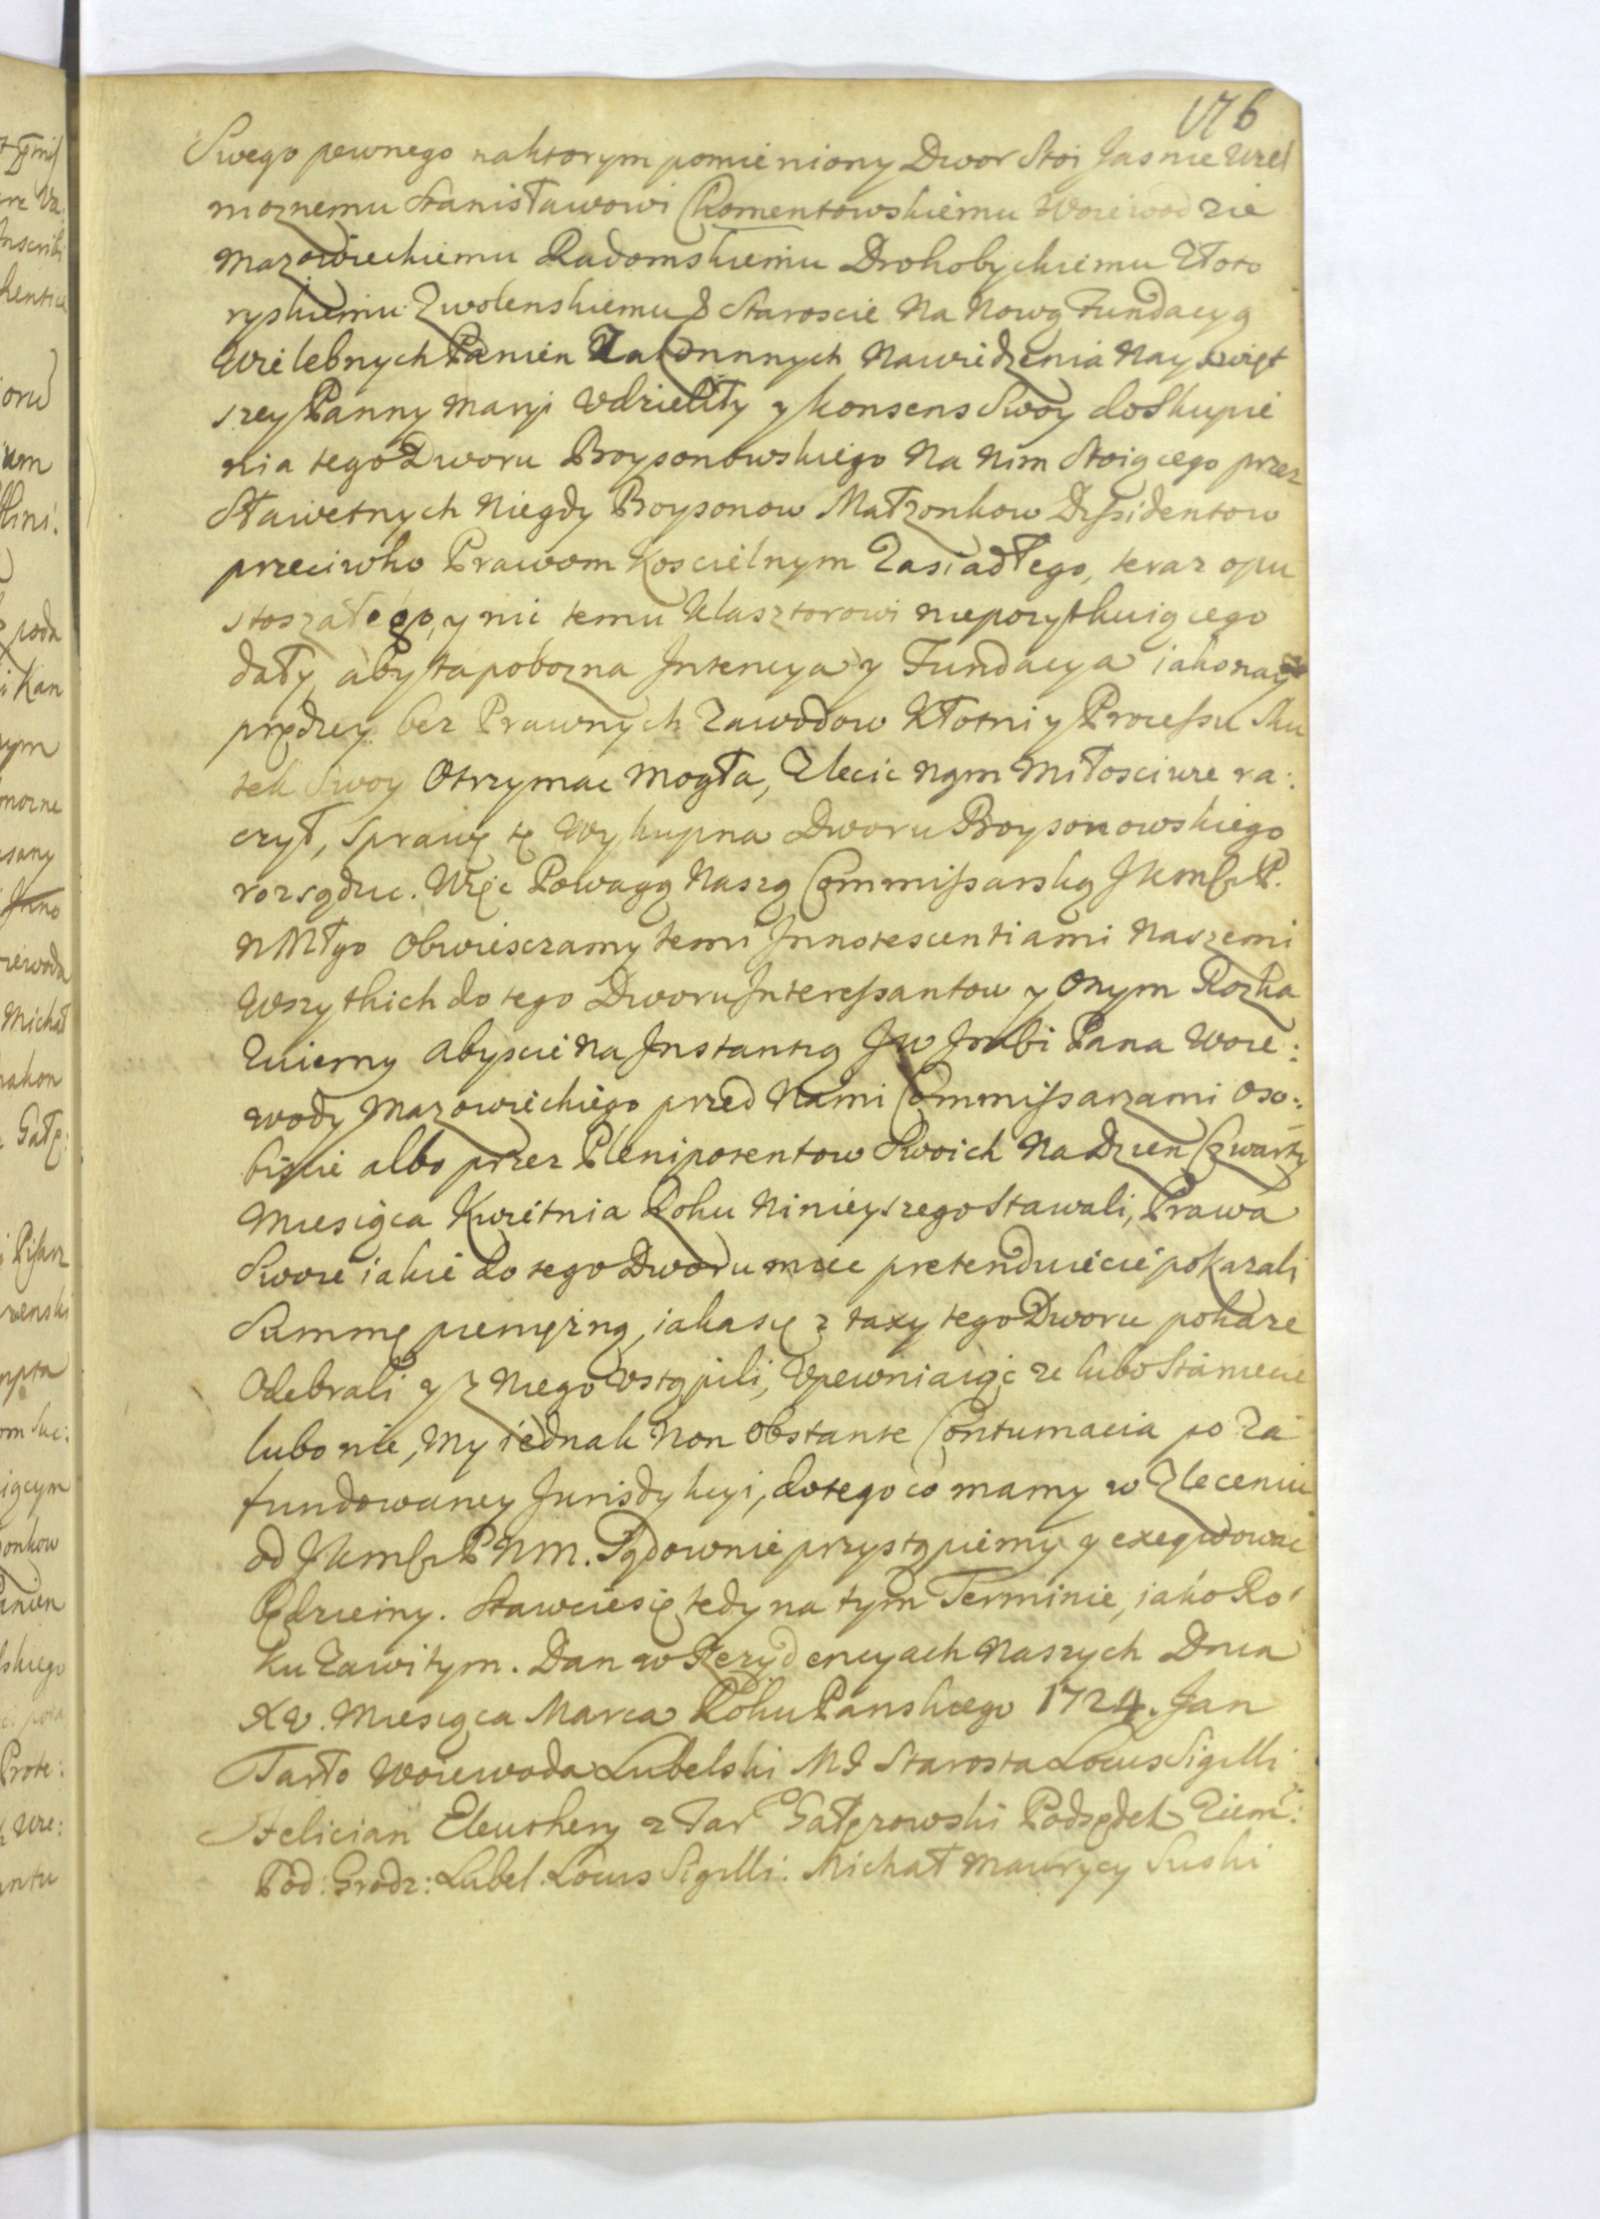 176
Swego pewnego naktorym pomieniony Dwor Stoi Jasnie Wiel
moznemu Stanisławowi Chomentowskiemu Woiewodzie
Mazowieckiemu Radomskiemu Drohobyckiemu Złoto
ryskiemu Zwolenskiemu & Staroscie Na Nową Fundacyą
Wielebnych Panien Zakonnnych Nawiedzenia Nayswięt
szey Panny Maryi Udzieliły y konsens Swoy do Skupie
nia tego Dworu Boysonowskiego Na Nim Stoiącego przez
Sławetnych Niegdy Boysonow Małzonkow Dyssidentow
przeciwko Prawom Koscielnym Zasiadłego, teraz opu
stoszałego, y nic temu Klasztorowi niepozytkuiącego
dały, aby ta pobozna Intencya y Fundacya iako nay
prędzey bez Prawnych Zawodow Kłotni y Processu Sku
tek Swoy Otrzymac Mogła, Zlecic Nam Miłosciwie ra:
czył, Sprawę tę Wykupna Dworu Boysonowskiego
rozsądzic. Więc Powagą Naszą Commissarską JKmsci P.
N Młgo Obwiesczamy temi Innotescentiami Naszemi
Wszytkich do tego Dworu Interessantow y Onym Rozka
zuiemy Abyscie Na Instantią JW Pana Woie:
wody Mazowieckiego przed Nami Commissarzami Oso:
biscie albo przez Plenipotentow Swoich Na Dzien Czwarty
Miesiąca Kwietnia Roku Ninieyszego Stawali, Prawa
Swoie iakie do tego Dworu miec pretenduiecie pokazali
Summę pieniężną, iaka się z taxy tego Dworu pokaze
Odebrali y z Niego Ustąpili, Upewniaiąc ze lubo Staniecie
lubo nie, My iednak Non Obstante Contumacia po Za
fundowaney Jurisdykcyi, do tego co mamy w Zleceniu
od JKmsci P N M. Sądownie przystąpiemy y exequowac
Będziemy. Stawcie się tedy na tym Terminie, iako Ro
ku Zawitym. Dan w Rezydencyach Naszych Dnia
XV. Miesiąca Marca Roku Panskiego 1724. Jan
Tarło Woiewoda Lubelski Starosta Locus Sigilli
Felician Eleuthery z Gałęzowski Podsędek Ziem:
Pod: Grodz: Lubel. Locus Sigilli. Michał Maurycy Suski